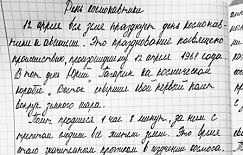 День космонавтики
12 апреля вся земля празднует день космонав-
тики и авиации. Это празднование посвящено
происшествию, произошедшему 12 апреля 1961 года.
В этот день Юрий Гагарин на космической
корабле "Восток" совершил свой первый полет
вокруг земного шара.
Полет продлился 1 час 8 минут, за ним с
трепетом следили все жители земли. Это время
стало значительным прорывом в изучении космоса.